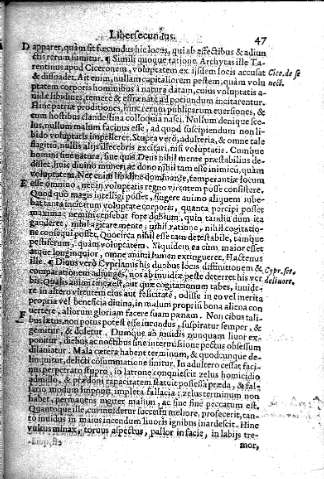 Liber secundus. 47
D apparet, quàm sit fœcundus hic locus, qui ab effectibus & adiun
ctis rerum sumitur. ¶ Simili quoque ratione Archytas ille Ta-
rentinus apud Ciceronem, voluptatem ex ijsdem locis accusat Cice. de se
& dissuadet. Ait enim, nullam capitaliorem pestem, quàm volu nect.
ptatem corporis hominibus à natura datam, cuius voluptatis a-
uidæ libidines, temere & effrænatè ad potiundum incitarentur.
Hinc patriæ proditiones, hinc rerum publicarum euersiones,
cum hostibus clandestina colloquia nasci. Nullum denique sce-
lus, nullum malum facinus esse, ad quod suscipiendum non li-
bido voluptatis impelleret. Stupra verò, adulteria, & omne tale
flagitium, nullis alijs illecebris excitari, nisi voluptatis. Cumque
homini siue natura, siue quis Deus nihil mente præstabilius de-
disset, huic diuino muneri, ac dono nihil tam esse inimicum, quàm
voluptatem. Nec enim libidine dominante, temperantiæ locum
E esse omnino, nec in voluptatis regno virtutem posse consistere.
Quod quo magis intelligi posset, fingere animo aliquem iube-
bat tanta incitatum voluptate corporis, quanta percipi posset
maxima: nemini censebat fore dubium, quin tandiu dum ita
gauderet, nihil agitare mente, nihil ratione, nihil cogitatio-
ne consequi posset. Quocirca nihil esse tam detestabile, tamque
pestiferum, quàm voluptatem. Siquidem ea cùm maior esset
atque longinquior, omne animi lumen extingueret. Hactenus
ille. Diuus verò Cyprianus his duobus locis
comparationem adiungens, nos ab inuidiæ peste deterret his ver
bis: Qualis animi tinea est, quæ cogitationum tabes, inuide-
re in altero virtutem eius aut felicitatem, odisse in eo vel merita
propria vel beneficia diuina, in malum proprium bona aliena con
F uertere, aliorum gloriam facere suam pœnam. Non cibus tali-
bus lætus, non potus potest esse iucundus, suspiratur semper, &
gemitur, & doletur. Dumque ab inuidis nunquam liuor ex-
ponitur, diebus ac noctibus sine intermissione pectus obsessum
dilaniatur. Mala cætera habent terminum, & quodcunque de-
linquitur, delicti consummatione finitur. In adultero cessat faci-
nus perpetrato stupro, in latrone conquiescit zelus homicidio
admisso, & prædoni rapacitatem statuit possessa præda, & fal-
sario modum imponit impleta fallacia: zelus terminum non
habet, permanens iugiter malum, ac sine fine peccatum est.
Quantoque ille, cui inuidetur successu meliore profecerit, tan-
to inuidus in maius incendium liuoris ignibus inardescit. Hinc
vultus minax, toruus aspectus, pallor in facie, in labijs tre-
mor,